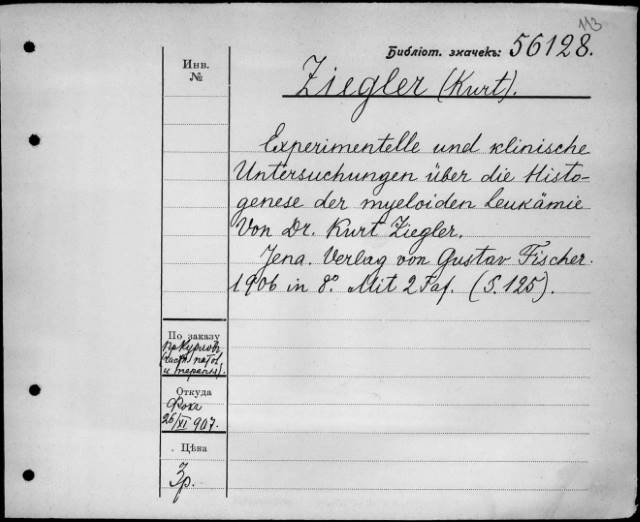 113
Библіот. значекъ: 56128.
Инв.
№
Ziegler (Kurt).
Experimentelle und klinische
Untersuchungen über die Histo-
genese der myeloiden Leukämie
Von Dr. Kurt Ziegler.
Jena. Verlag von Gustav Fischer.
1906 in 8°. Mit 2 Taf. (S. 125).
По заказу
пр Курлов
(част. патол
и терапія).
Откуда
Фока
26/XI 907.
Цѣна
3р.